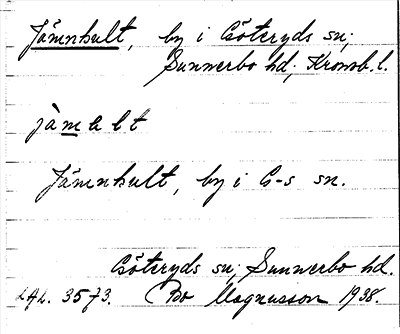 Jämnhult, by i Göteryds sn;
Sunnerbo hd; Kronob. l.
jàmalt
Jämnhult, by i G-s sn.
Göteryds sn; Sunnerbo hd.
LAL. 3573. Bo Magnusson 1938.